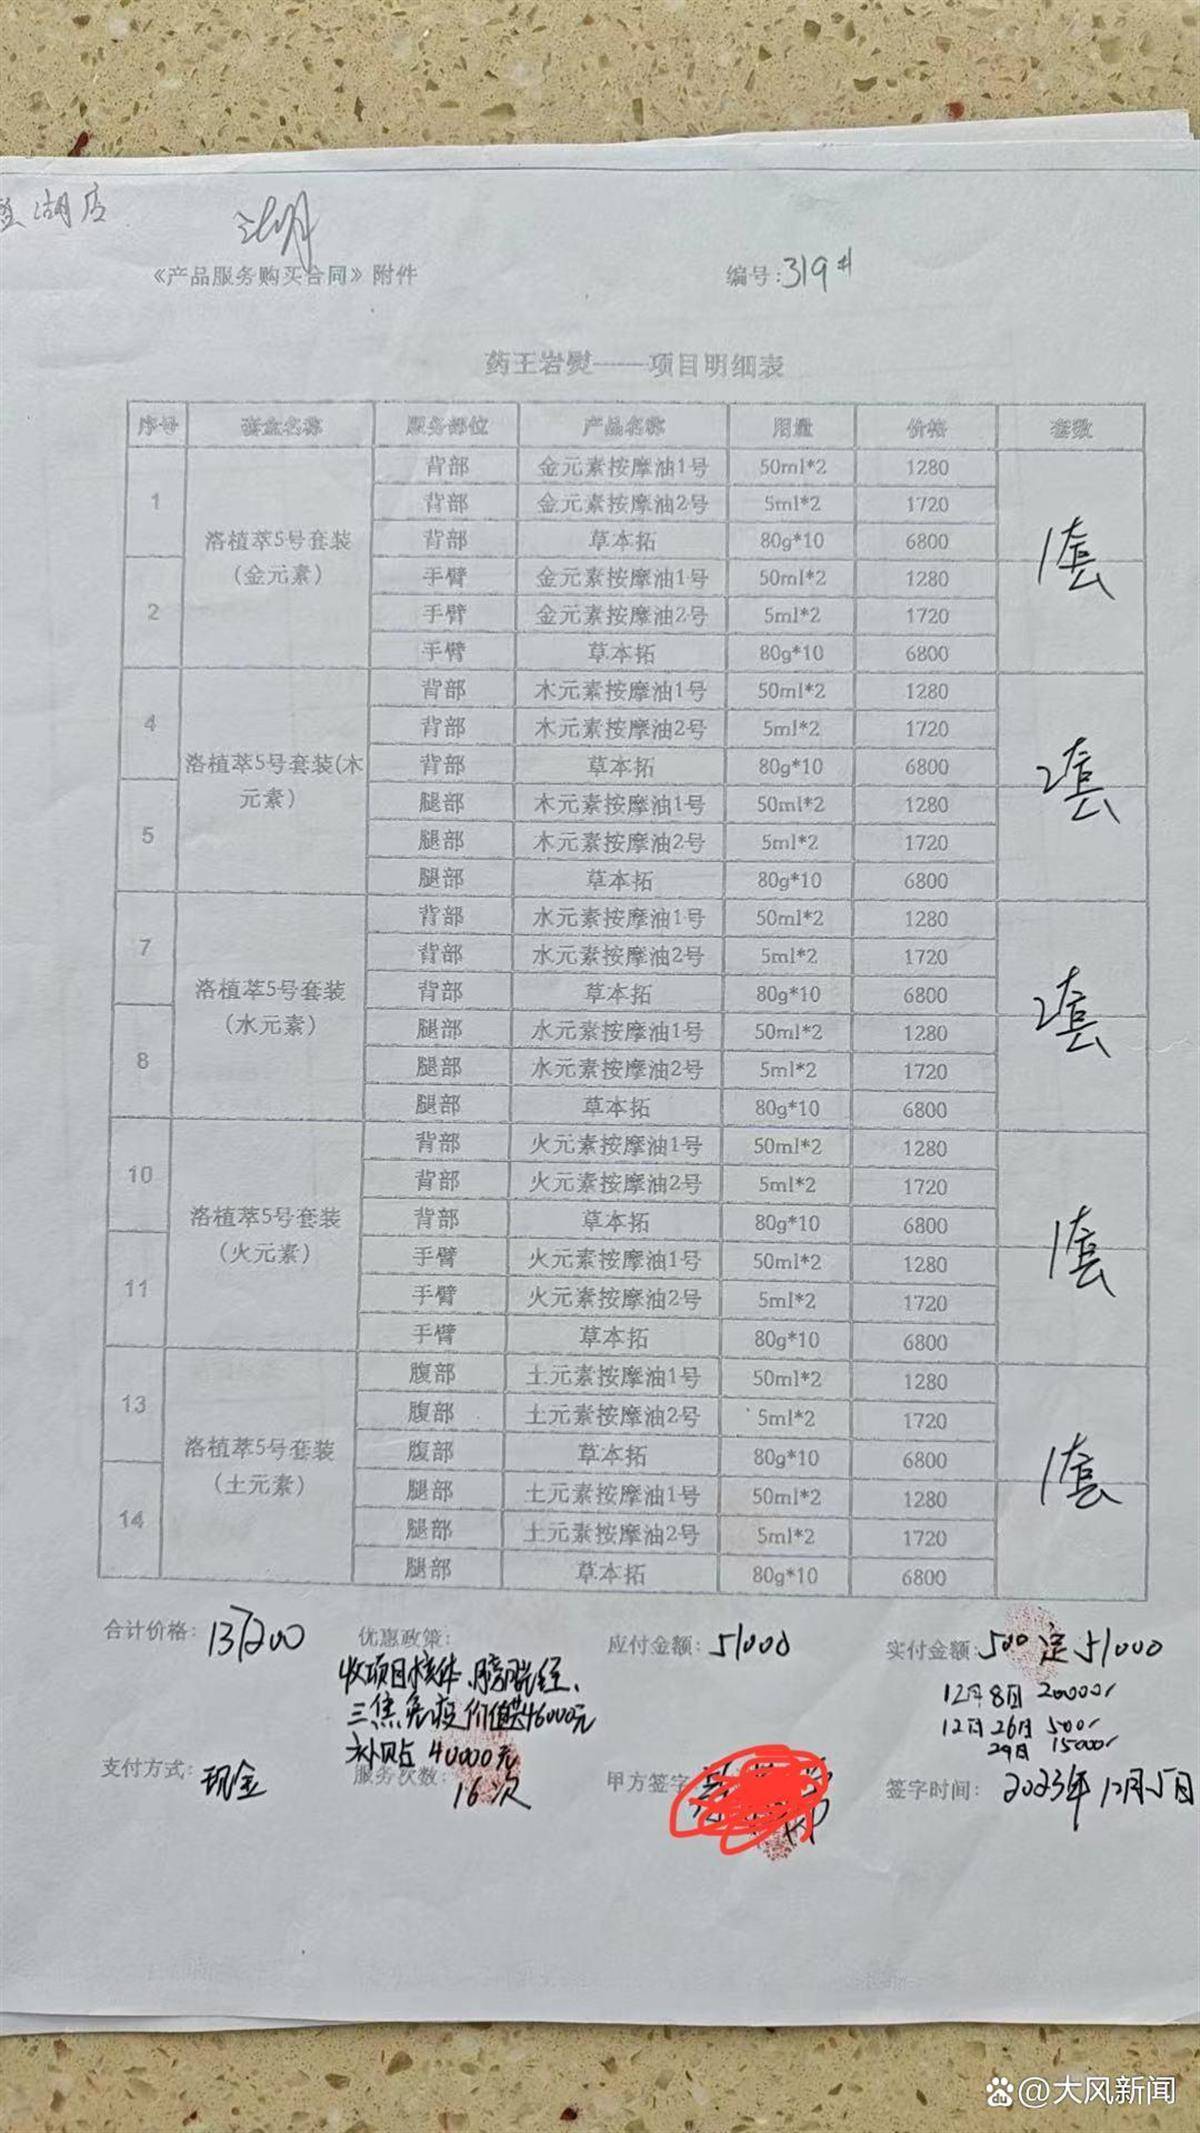 湖店
湖
《产品服务购买合同》附件
编号:319#
药王岩熨——项目明细表
序号 套盒名称 服务部位 产品名称 用量 价格 套数
1 洛植萃5号套装（金元素） 背部 金元素按摩油1号 50ml*2 1280 1套
背部 金元素按摩油2号 5ml*2 1720
背部 草本拓 80g*10 6800
2 手臂 金元素按摩油1号 50ml*2 1280
手臂 金元素按摩油2号 5ml*2 1720
手臂 草本拓 80g*10 6800
4 洛植萃5号套装(木元素） 背部 木元素按摩油1号 50ml*2 1280 2套
背部 木元素按摩油2号 5ml*2 1720
背部 草本拓 80g*10 6800
5 腿部 木元素按摩油1号 50ml*2 1280
腿部 木元素按摩油2号 5ml*2 1720
腿部 草本拓 80g*10 6800
7 洛植萃5号套装（水元素） 背部 水元素按摩油1号 50ml*2 1280 2套
背部 水元素按摩油2号 5ml*2 1720
背部 草本拓 80g*10 6800
8 腿部 水元素按摩油1号 50ml*2 1280
腿部 水元素按摩油2号 5ml*2 1720
腿部 草本拓 80g*10 6800
10 洛植萃5号套装（火元素） 背部 火元素按摩油1号 50ml*2 1280 1套
背部 火元素按摩油2号 5ml*2 1720
背部 草本拓 80g*10 6800
11 手臂 火元素按摩油1号 50ml*2 1280
手臂 火元素按摩油2号 5ml*2 1720
手臂 草本拓 80g*10 6800
13 洛植萃5号套装（土元素） 腹部 土元素按摩油1号 50ml*2 1280 1套
腹部 土元素按摩油2号 5ml*2 1720
腹部 草本拓 80g*10 6800
14 腿部 土元素按摩油1号 50ml*2 1280
腿部 土元素按摩油2号 5ml*2 1720
腿部 草本拓 80g*10 6800
合计价格: 137200 优惠政策: 应付金额: 51000 实付金额: 500 定 51000
收项目 膀胱经、
三焦免疫价值共46000元
补贴40000元
12月8日 20000
12月26日 500
29日 15000
支付方式: 现金 服务次数: 16次 甲方签字 签字时间: 2023年12月5日
du @大风新闻